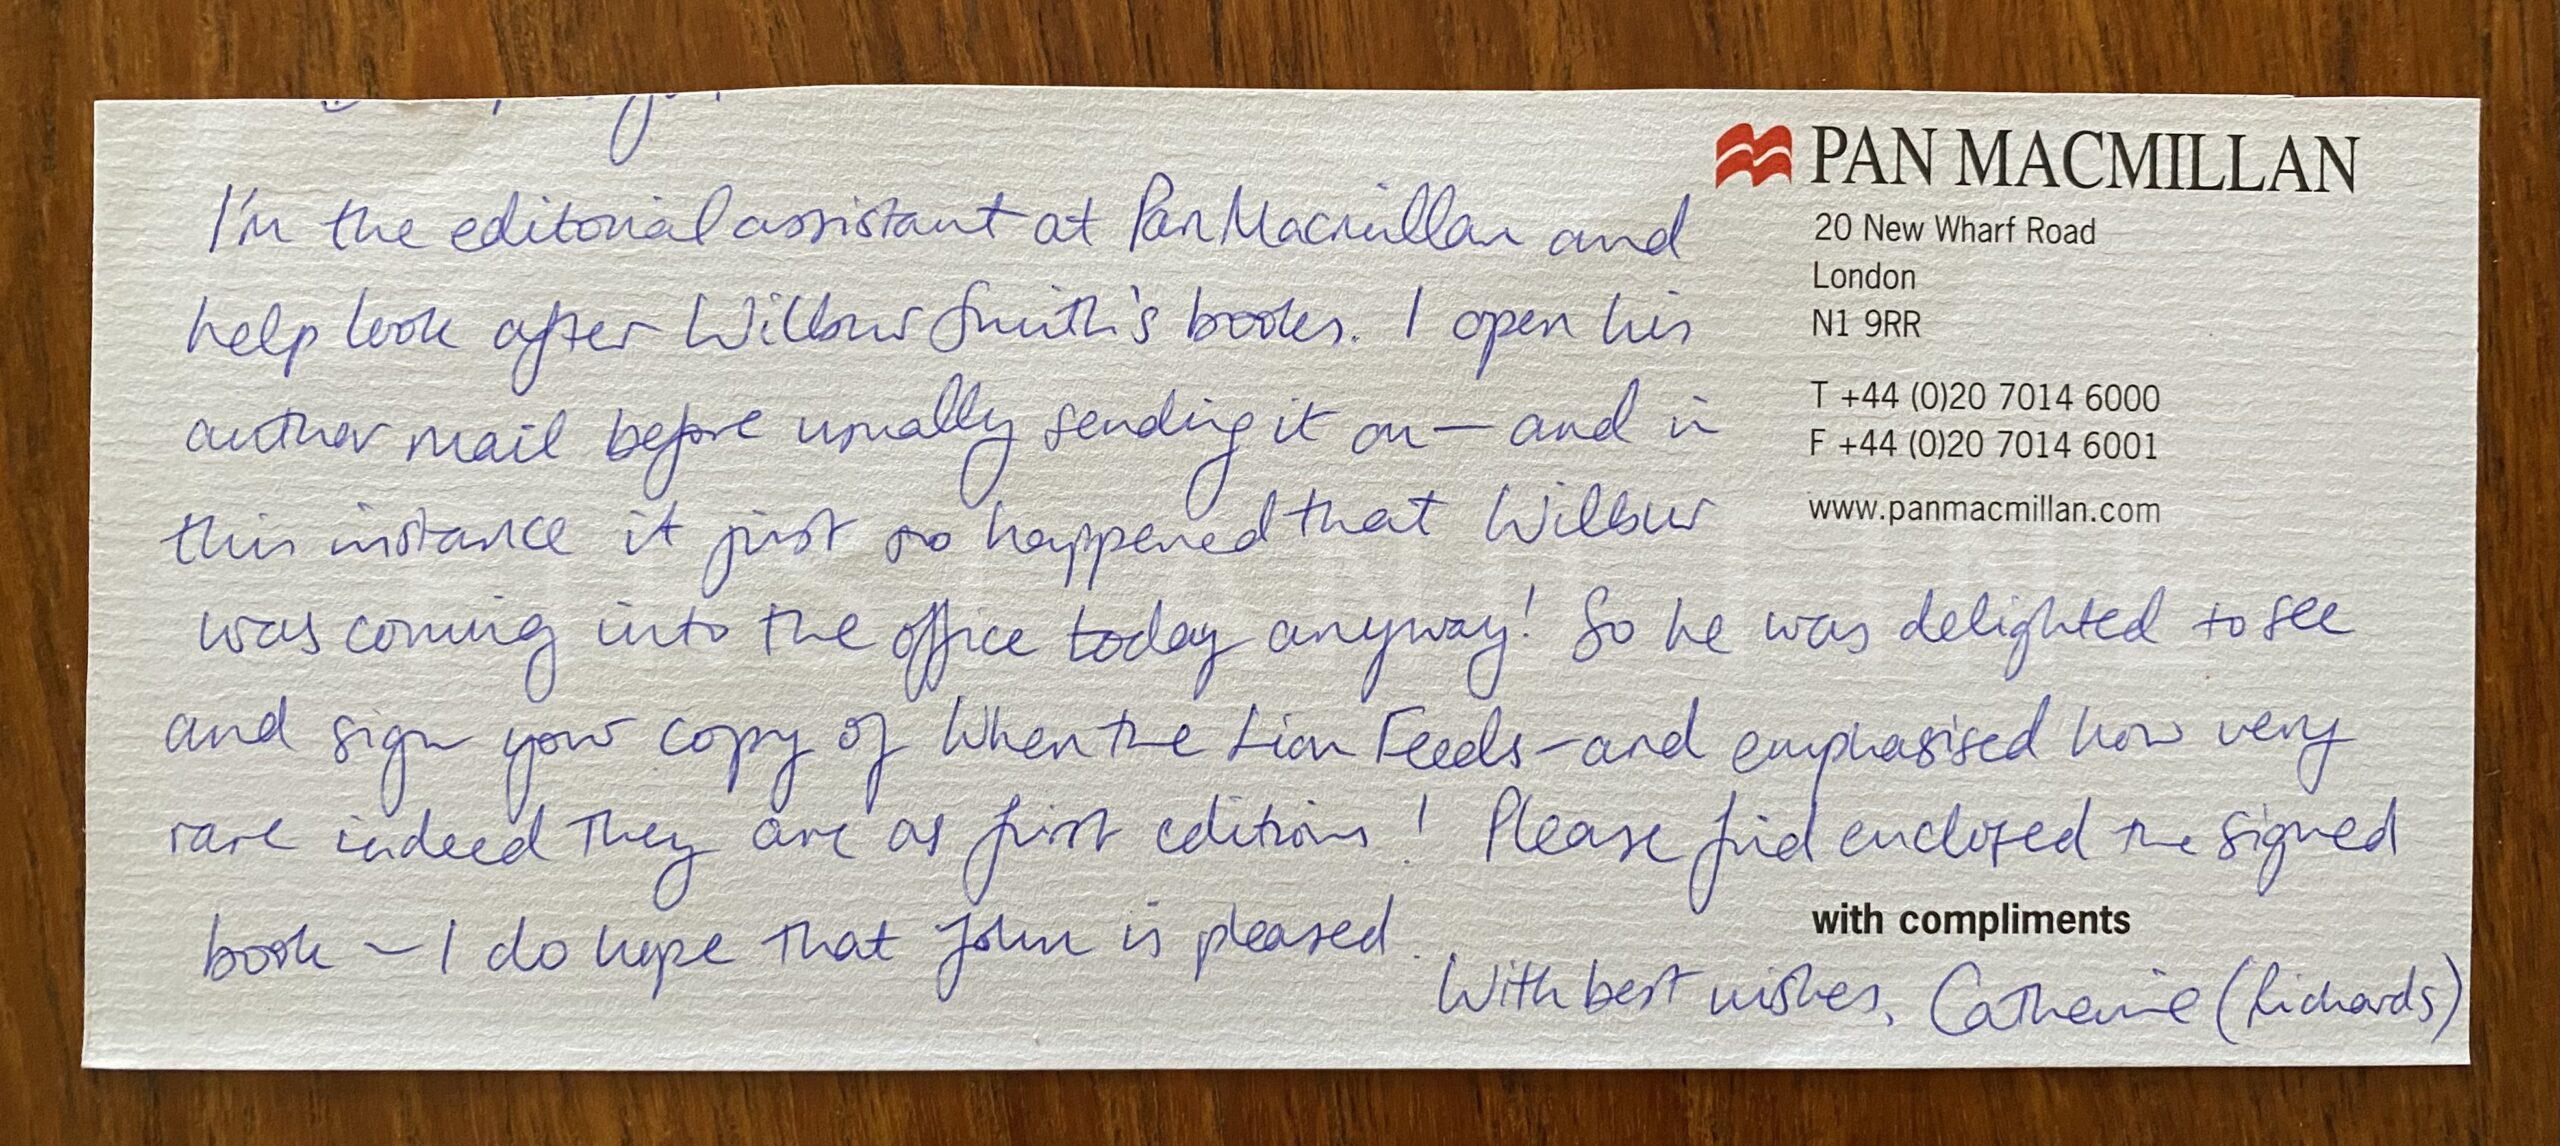 I'm the editorial assistant at Pan Macmillan and
help look after Wilbur Smith's books. I open his
author mail before usually sending it on — and in
this instance it just so happened that Wilbur
was coming into the office today anyway! So he was delighted to see
and sign your copy of When the Lion Feeds — and emphasised how very
rare indeed they are as first editions! Please find enclosed the signed
book — I do hope that John is pleased.
With best wishes, Catherine (Richards)
PAN MACMILLAN
20 New Wharf Road
London
N1 9RR
T +44 (0)20 7014 6000
F +44 (0)20 7014 6001
www.panmacmillan.com
with compliments